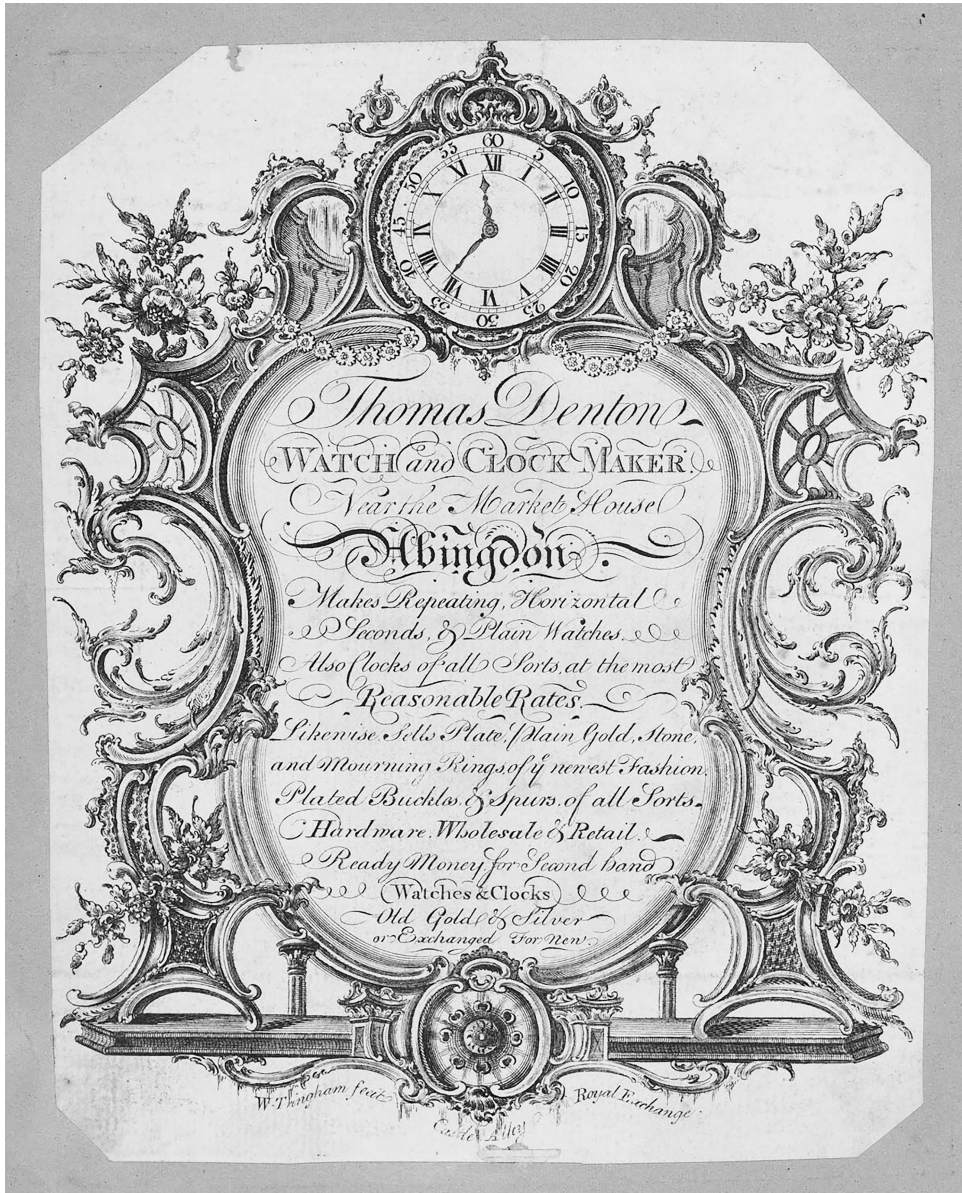 60
5
10
15
20
25
30
35
40
45
50
55
XII
I
II
III
IIII
V
VI
VII
VIII
IX
X
XI
Thomas Denton
WATCH and CLOCK MAKER.
Near the Market House
Abingdon.
Makes Repeating, Horizontal
Seconds, & Plain Watches.
Also Clocks of all Sorts, at the most
Reasonable Rates.
Likewise Sells Plate, Plain Gold, Stone,
and Mourning Rings, of ye newest Fashion.
Plated Buckles, & Spurs, of all Sorts.
Hardware, Wholesale & Retail.
Ready Money for Second hand
Watches & Clocks
Old Gold & Silver
or Exchanged For New.
W. Tringham fecit Castle Alley Royal Exchange.